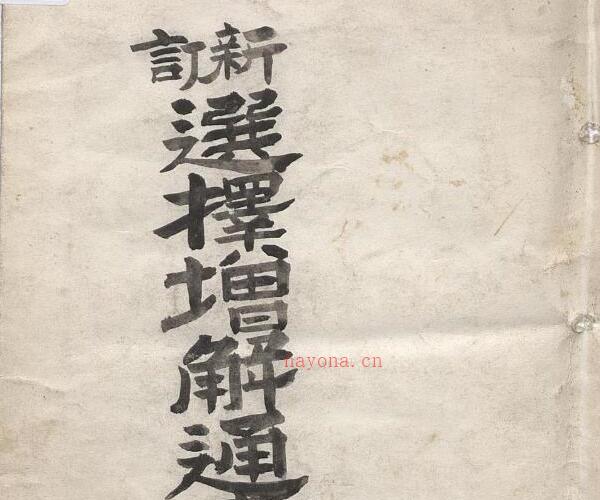 新訂
選擇增解通
nayona.cn